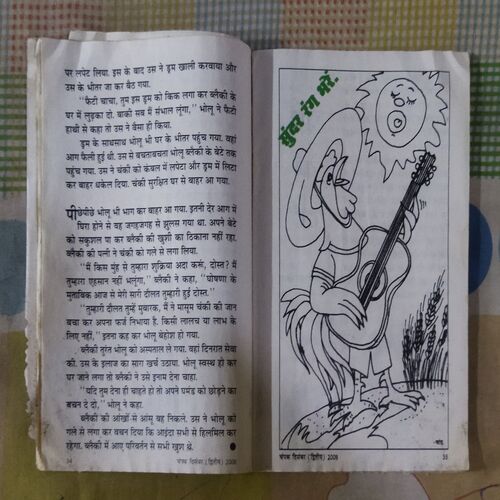 पर लपेट लिया. इस के बाद उस ने ड्रम खाली करवाया और
उस के भीतर जा कर बैठ गया.
‘‘फैटी चाचा, तुम इस ड्रम को किक लगा कर ब्लैकी के
घर में लुढ़का दो. बाकी सब मैं संभाल लूंगा,’’ भोलू ने फैटी
हाथी से कहा तो उस ने वैसा ही किया.
ड्रम के साथसाथ भोलू भी घर के भीतर पहुंच गया. वहां
आग फैली हुई थी. उस से बचताबचता भोलू ब्लैकी के बेटे तक
पहुंच गया. उस ने चंकी को कंबल में लपेटा और ड्रम में लिटा
कर बाहर धकेल दिया. चंकी सुरक्षित घर से बाहर आ गया.
पीछेपीछे भोलू भी भाग कर बाहर आ गया. इतनी देर आग में
घिरा होने से वह जगहजगह से झुलस गया था. अपने बेटे
को सकुशल पा कर ब्लैकी की खुशी का ठिकाना नहीं रहा.
ब्लैकी की पत्नी ने चंकी को गले से लगा लिया.
‘‘मैं किस मुंह से तुम्हारा शुक्रिया अदा करूं, दोस्त? मैं
तुम्हारा एहसान नहीं भूलूंगा,’’ ब्लैकी ने कहा, ‘‘घोषणा के
मुताबिक आज से मेरी सारी दौलत तुम्हारी हुई दोस्त.’’
‘‘तुम्हारी दौलत तुम्हें मुबारक, मैं ने मासूम चंकी की जान
बचा कर अपना फर्ज निभाया है. किसी लालच या लाभ के
लिए नहीं,’’ इतना कह कर भोलू बेहोश हो गया.
ब्लैकी तुरंत भोलू को अस्पताल ले गया. वहां दिनरात सेवा
की. उस के इलाज का सारा खर्च उठाया. भोलू स्वस्थ हो कर
घर जाने लगा तो ब्लैकी ने उसे इनाम देना चाहा.
‘‘यदि तुम देना ही चाहते हो तो अपने घमंड को छोड़ने का
वचन दे दो,’’ भोलू ने कहा.
ब्लैकी की आंखों से आंसू बह निकले. उस ने भोलू को
गले से लगा कर वचन दिया कि आइंदा सभी से हिलमिल कर
रहेगा. ब्लैकी में आए परिवर्तन से सभी खुश थे.
34
चंपक दिसंबर (द्वितीय) 2009
सुंदर रंग भरें.
चंपक दिसंबर (द्वितीय) 2009
35